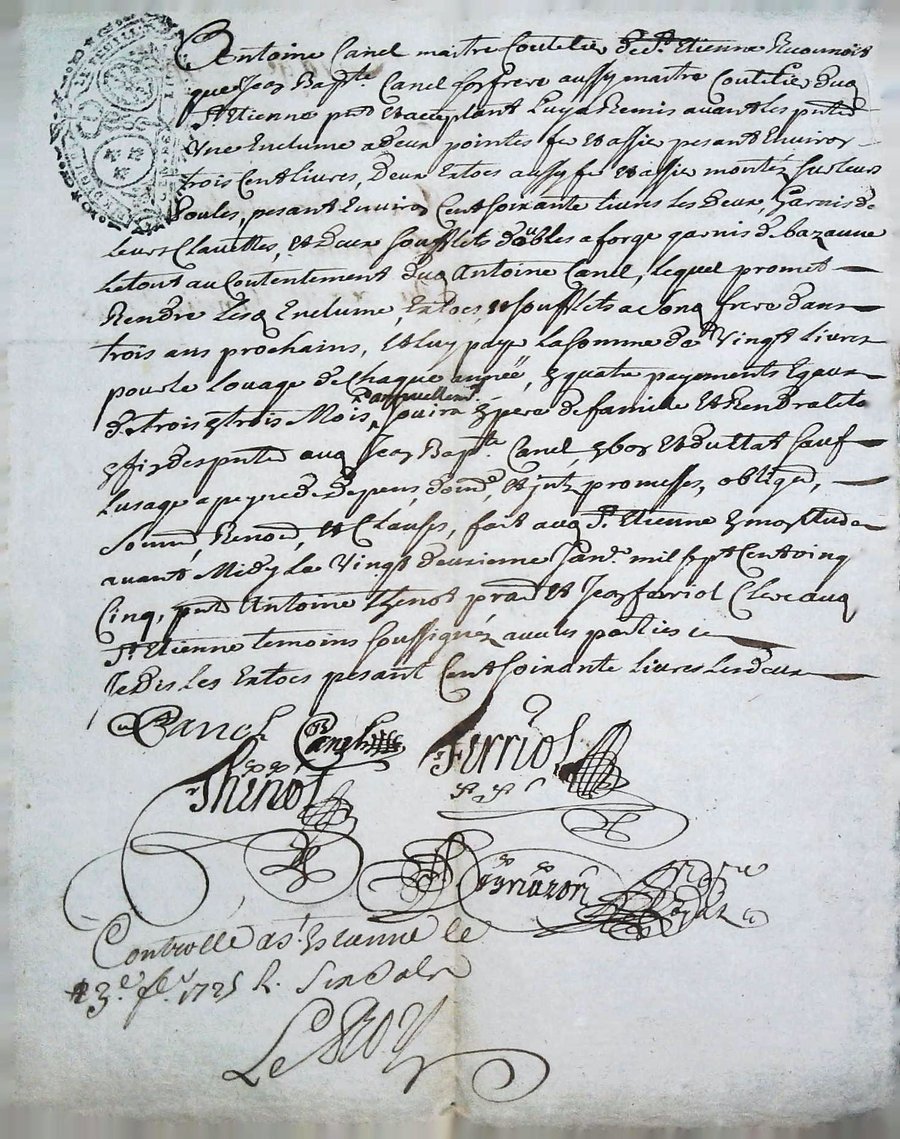 Antoine Canel maitre Coutelier de St. Etienne Reconnoit
que Jean Bapte. Canel son frere aussy maitre Coutelier dud
St. Etienne pnt et acceptant luy a Remis avant les pntes
Une Enclume a deux pointes fer et assie pesant Environ
trois Cent livres, Deux Extocs aussy fer et assie montés sur leurs
pesant Environ Cent soixante livres les deux, Garnis de
leurs Clavettes, et deux soufflets doubles a forge garnis de bazanne
Le tout au Contentement dud Antoine Canel, lequel promet
Rendre lesd Enclume, Extocs et soufflets a son frere dans
trois ans prochains, et luy paye la somme de Vingt livres
pour le louage de chaque année, en quatre payements Egaux
de trois en trois Mois annuellemt. jouira en pere de famille et Rendra le to
en fin des pntes aud Jean Bapte. Canel, en bon et du Etat sauf
lusage a peyne de depens, dom, et promesses, obligãon,
soumon, Renon, et Clauses, fait aud St. Etienne
avant Midy le Vingt deuxieme Janv. mil sept Cent ving
Cinq, pnt Antoine Thenot et Jean ferriol Clerc aud
St. Etienne temoins soussignéz avec les parties
Je dis les Extocs pesant Cent soixante livres les deux
Canel Canel ferriol
Thenot
Controllé a St. Estienne le
23e. 1725 R. Six sols
Le Roy